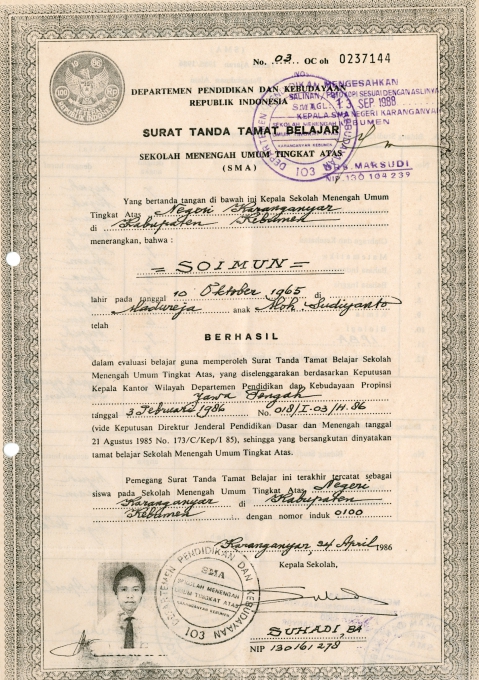 No. 03 OC oh 0237144
DEPARTEMEN PENDIDIKAN DAN KEBUDAYAAN
REPUBLIK INDONESIA
MENGESAHKAN
SALINAN / FOTO KOPI SESUAI DENGAN ASLINYA
TGL. 13 SEP 1988
KEPALA SMA NEGERI KARANGANYAR
KEBUMEN
SURAT TANDA TAMAT BELAJAR
SEKOLAH MENENGAH UMUM TINGKAT ATAS
(SMA)
MARSUDI
NIP 130 104 239
103
Yang bertanda tangan di bawah ini Kepala Sekolah Menengah Umum
Tingkat Atas Negeri Karanganyar
di Kabupaten Kebumen
menerangkan, bahwa :
= SOIMUN =
lahir pada tanggal 10 Oktober 1965 di
Madureja anak Moh. Sudiyanto
telah
BERHASIL
dalam evaluasi belajar guna memperoleh Surat Tanda Tamat Belajar Sekolah
Menengah Umum Tingkat Atas, yang diselenggarakan berdasarkan Keputusan
Kepala Kantor Wilayah Departemen Pendidikan dan Kebudayaan Propinsi
Jawa Tengah
tanggal 3 Februari 1986 No. 018/I-03/H.86
(vide Keputusan Direktur Jenderal Pendidikan Dasar dan Menengah tanggal
21 Agustus 1985 No. 173/C/Kep/I 85), sehingga yang bersangkutan dinyatakan
tamat belajar Sekolah Menengah Umum Tingkat Atas.
Pemegang Surat Tanda Tamat Belajar ini terakhir tercatat sebagai
siswa pada Sekolah Menengah Umum Tingkat Atas Negeri
Karanganyar di Kabupaten
Kebumen dengan nomor induk 0100
Karanganyar, 24 April 1986
Kepala Sekolah,
DEPARTEMEN PENDIDIKAN DAN KEBUDAYAAN
SMA
SEKOLAH MENENGAH
UMUM TINGKAT ATAS
KARANGANYAR KEBUMEN
103
SUHADI, BA
NIP 130161278